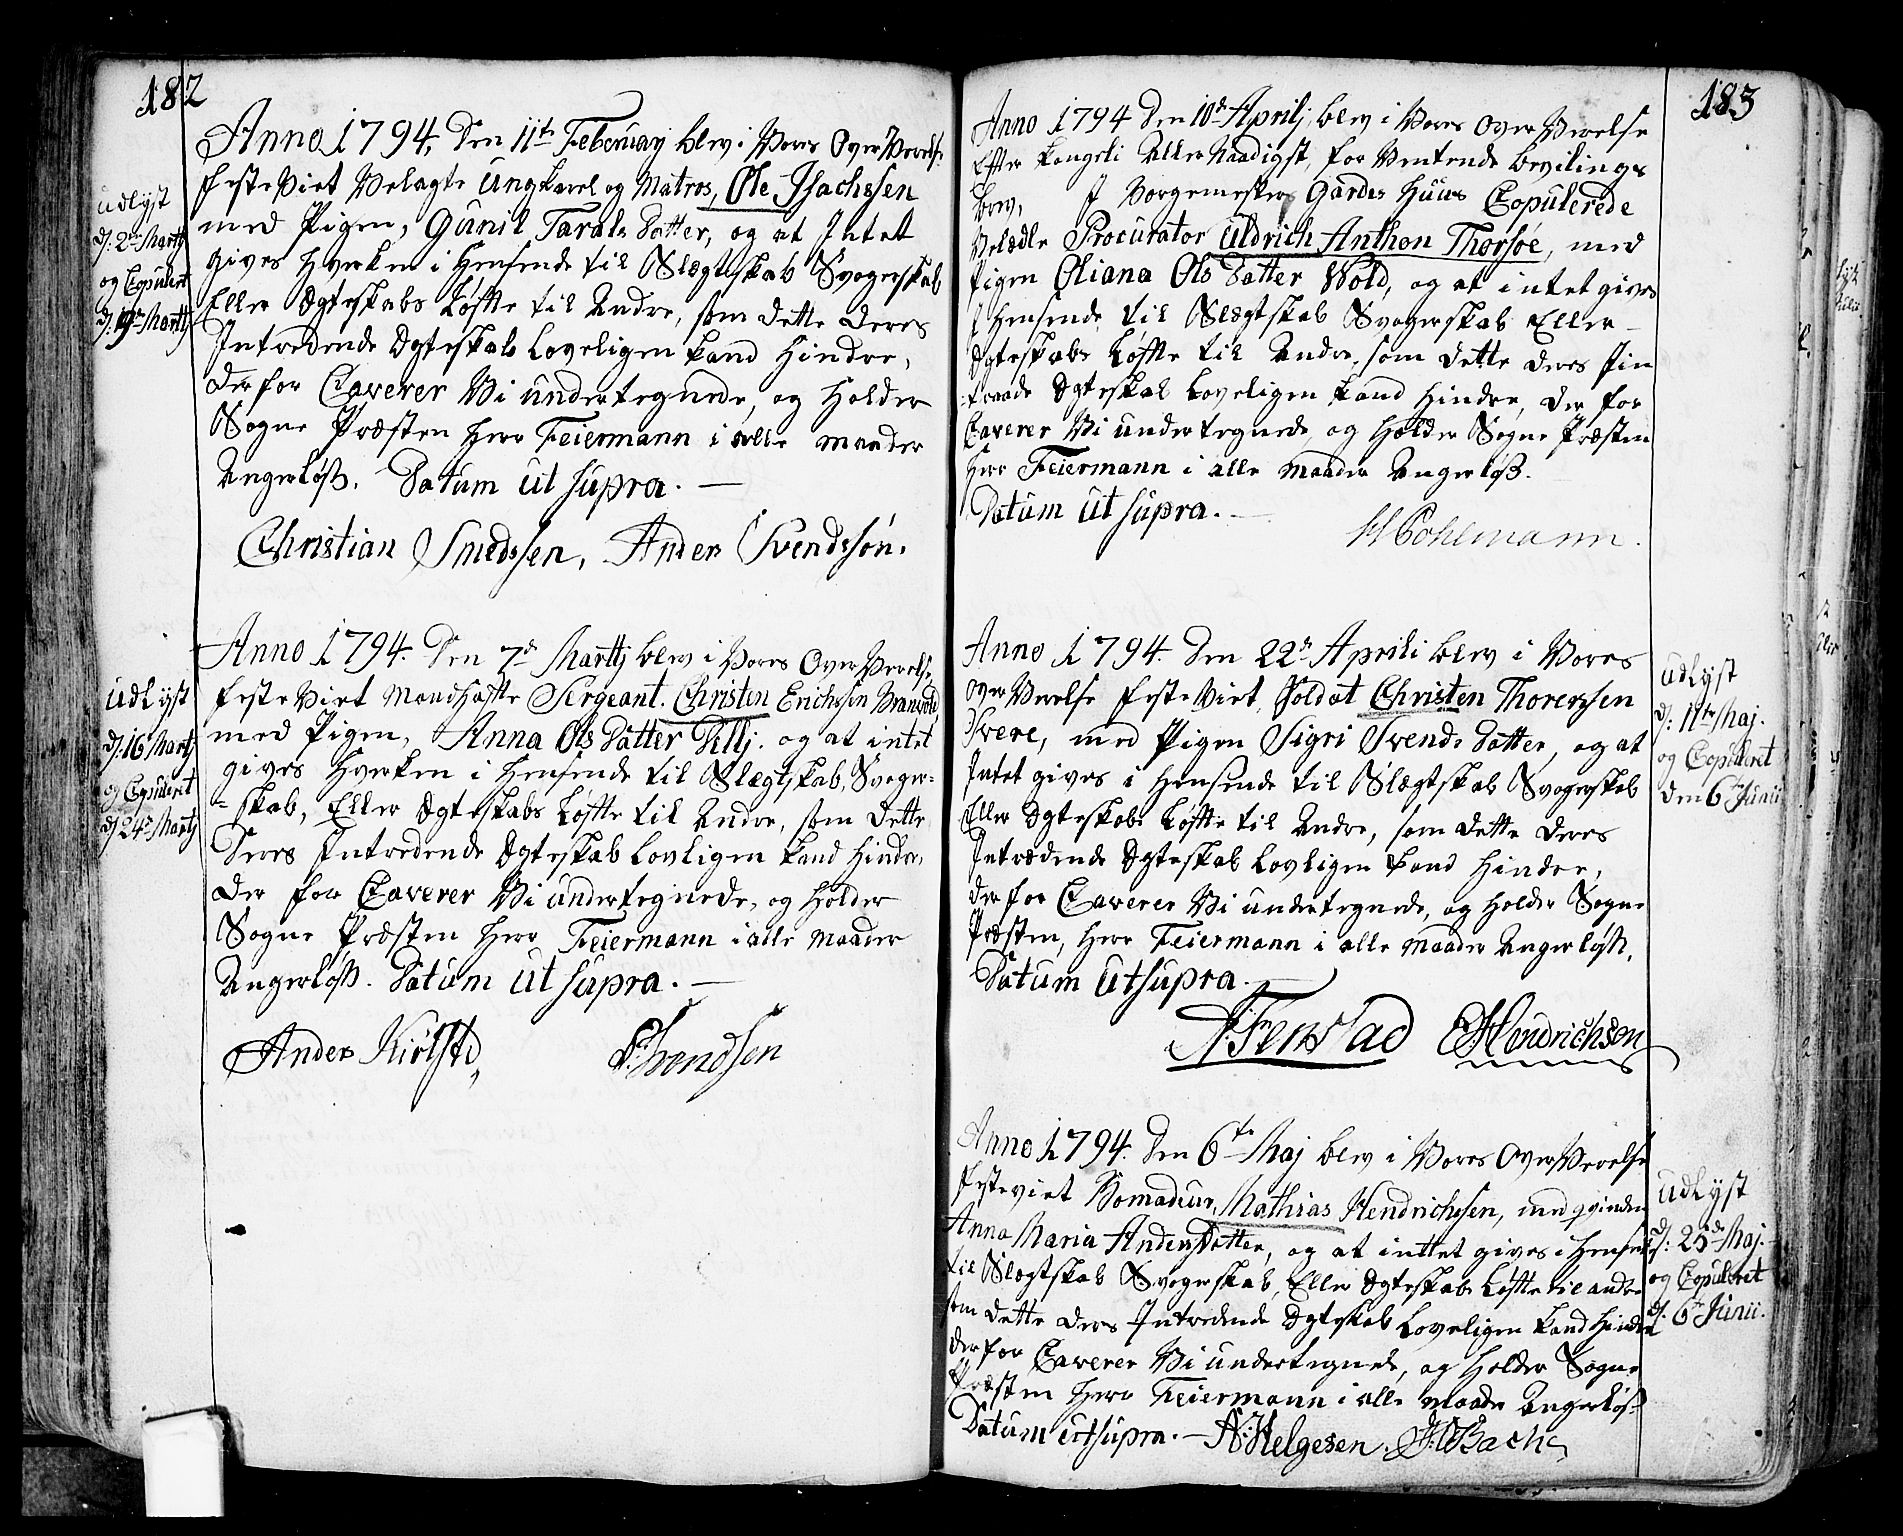 182
Anno 1794, Den 11te Februarj blev i Vores Over Verelse
feste Viet Velagte Ungkarel og Matros, Ole Isachssen
med Pigen, Gunil Tarals Datter, og at Intet
gives hverken i Hensende til Slægteskab Svogerskab
Eller Ægteskabs Løfte til Andre, som dette deres
Intredende Ægteskab Loveligen kand Hindre,
derfor Caverer Vi undertegnede, og Holder
Sogne Præsten Herr Feiermann i alle maader
Angerløs. Datum ut supra.
Christian Smedssen, Anders Svendssøn.
udlyst
d: 2den Martij
og Copuleret
d: 19de Martij
Anno 1794. Den 7de Martij blev i Vores Over Verelse
feste Viet Mandhafte Sergeant Christen Erichssen Branvold
med Pigen, Anna Ols Datter Tellj. og at intet
gives hverken i Hensende til Slægtskab, Svoger=
=skab, Eller Ægteskabs Løfte til Andre, som dette
Deres Intredende Ægteskab Lovligen kand Hindre,
der for Caverer Vi undertegnede, og Holder
Sogne Præsten Herr Feiermann i alle Maader
Angerløs. Datum ut supra.
Anders Kiølsted, Svendsen
udlyst
d: 16 Martij
og Copuleret
d: 24de Martij
183
Anno 1794 Den 10de Aprilj blev i Vores Over Verelse
Efter kongeli Aller Naadigst, for Ventende bevilings
brev, I Borgemesters Gardes Huus Copulerede
Velædle Procurator Uldrich Anthon Thorsøe, med
Pigen Oliana Ols Datter Wold, og at intet gives
I Hensende til Slægtskab Svogerskab Eller
Ægteskabs Løfte til Andre, som dette deres Iin
=traade Ægteskab Loveligen kand Hindre, der for
Caverer Vi undertegnede, og Holder Sogne Præsten
Herr Feiermann i alle Maader Angerløs.
Datum ut supra.
Pohlmann.
Anno 1794. Den 22de Aprili blev i Vores
over Verelse feste Viet, Soldat Christen Thorerssen
Svere, med Pigen Sigri Svends Datter, og at
Intet gives i Hensende til Slægtskab Svogerskab
Eller Ægteskabs Løfte til Andre, som dette deres
Intrædende Ægteskab Lovligen kand Hindre,
derfor Caverer Vi undertegnede, og Holder Sogne
Præsten, Herr Feiermann i alle Maader Angerløs.
Datum ut supra.
Fenstad Hendrichsen
udlyst
d: 11te Maj.
og Copuleret
den 6te Junii
Anno 1794. Den 6te Maj blev i Vores Over Verelse
festeviet Bomadeur, Mathias Hendrichssen, med qvinden
Anna Maria Anders Datter, og at inttet gives i Hensende
til Slægtskab Svogerskab, Eller Ægteskabs Løfte til andre
som dette deres Intredende Ægteskab Loveligen kand Hindre
derfor Caverer Vi undertegnede, og Holder Sogne
Præsten Herr Feiermann i alle maader Angerløs
Datum ut supra. A: Helgesen. Bache
udlyst
d: 25de Maj.
og Copuleret
d: 6te Junii.